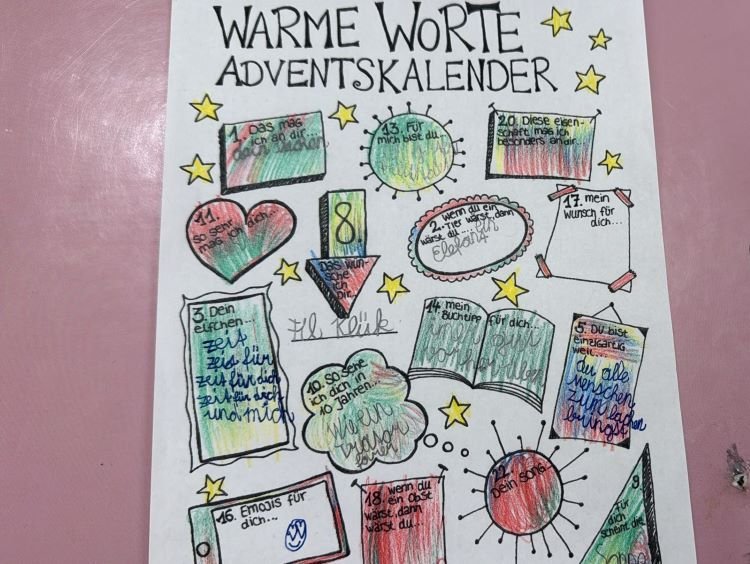 WARME WORTE
ADVENTSKALENDER
1. Das mag
ich an dir...
dein Lachen
13. Für
mich bist du...
20. Diese eigen-
schaft mag ich
besonders an dir...
11.
so sehr
mag ich dich...
8
Das wün-
sche
ich
Dir...
2. Wenn du ein
Tier wärst, dann
wärst du.... ein
Elefant
17. mein
wunsch für
dich...
3. Dein
elfchen...
zeit
zeit für
zeit für dich
zeit für dich
und mich
14. mein
Buchtipp für dich...
5. Du bist
einzigartig
weil...
du alle
menschen
zum lachen
bringst
10. So sehe
ich dich in
10 Jahren...
16. Emojis für
dich...
18. wenn du
ein Obst
wärst, dann
wärst du...
22.
Dein Song.
9
Für
dich
scheint die